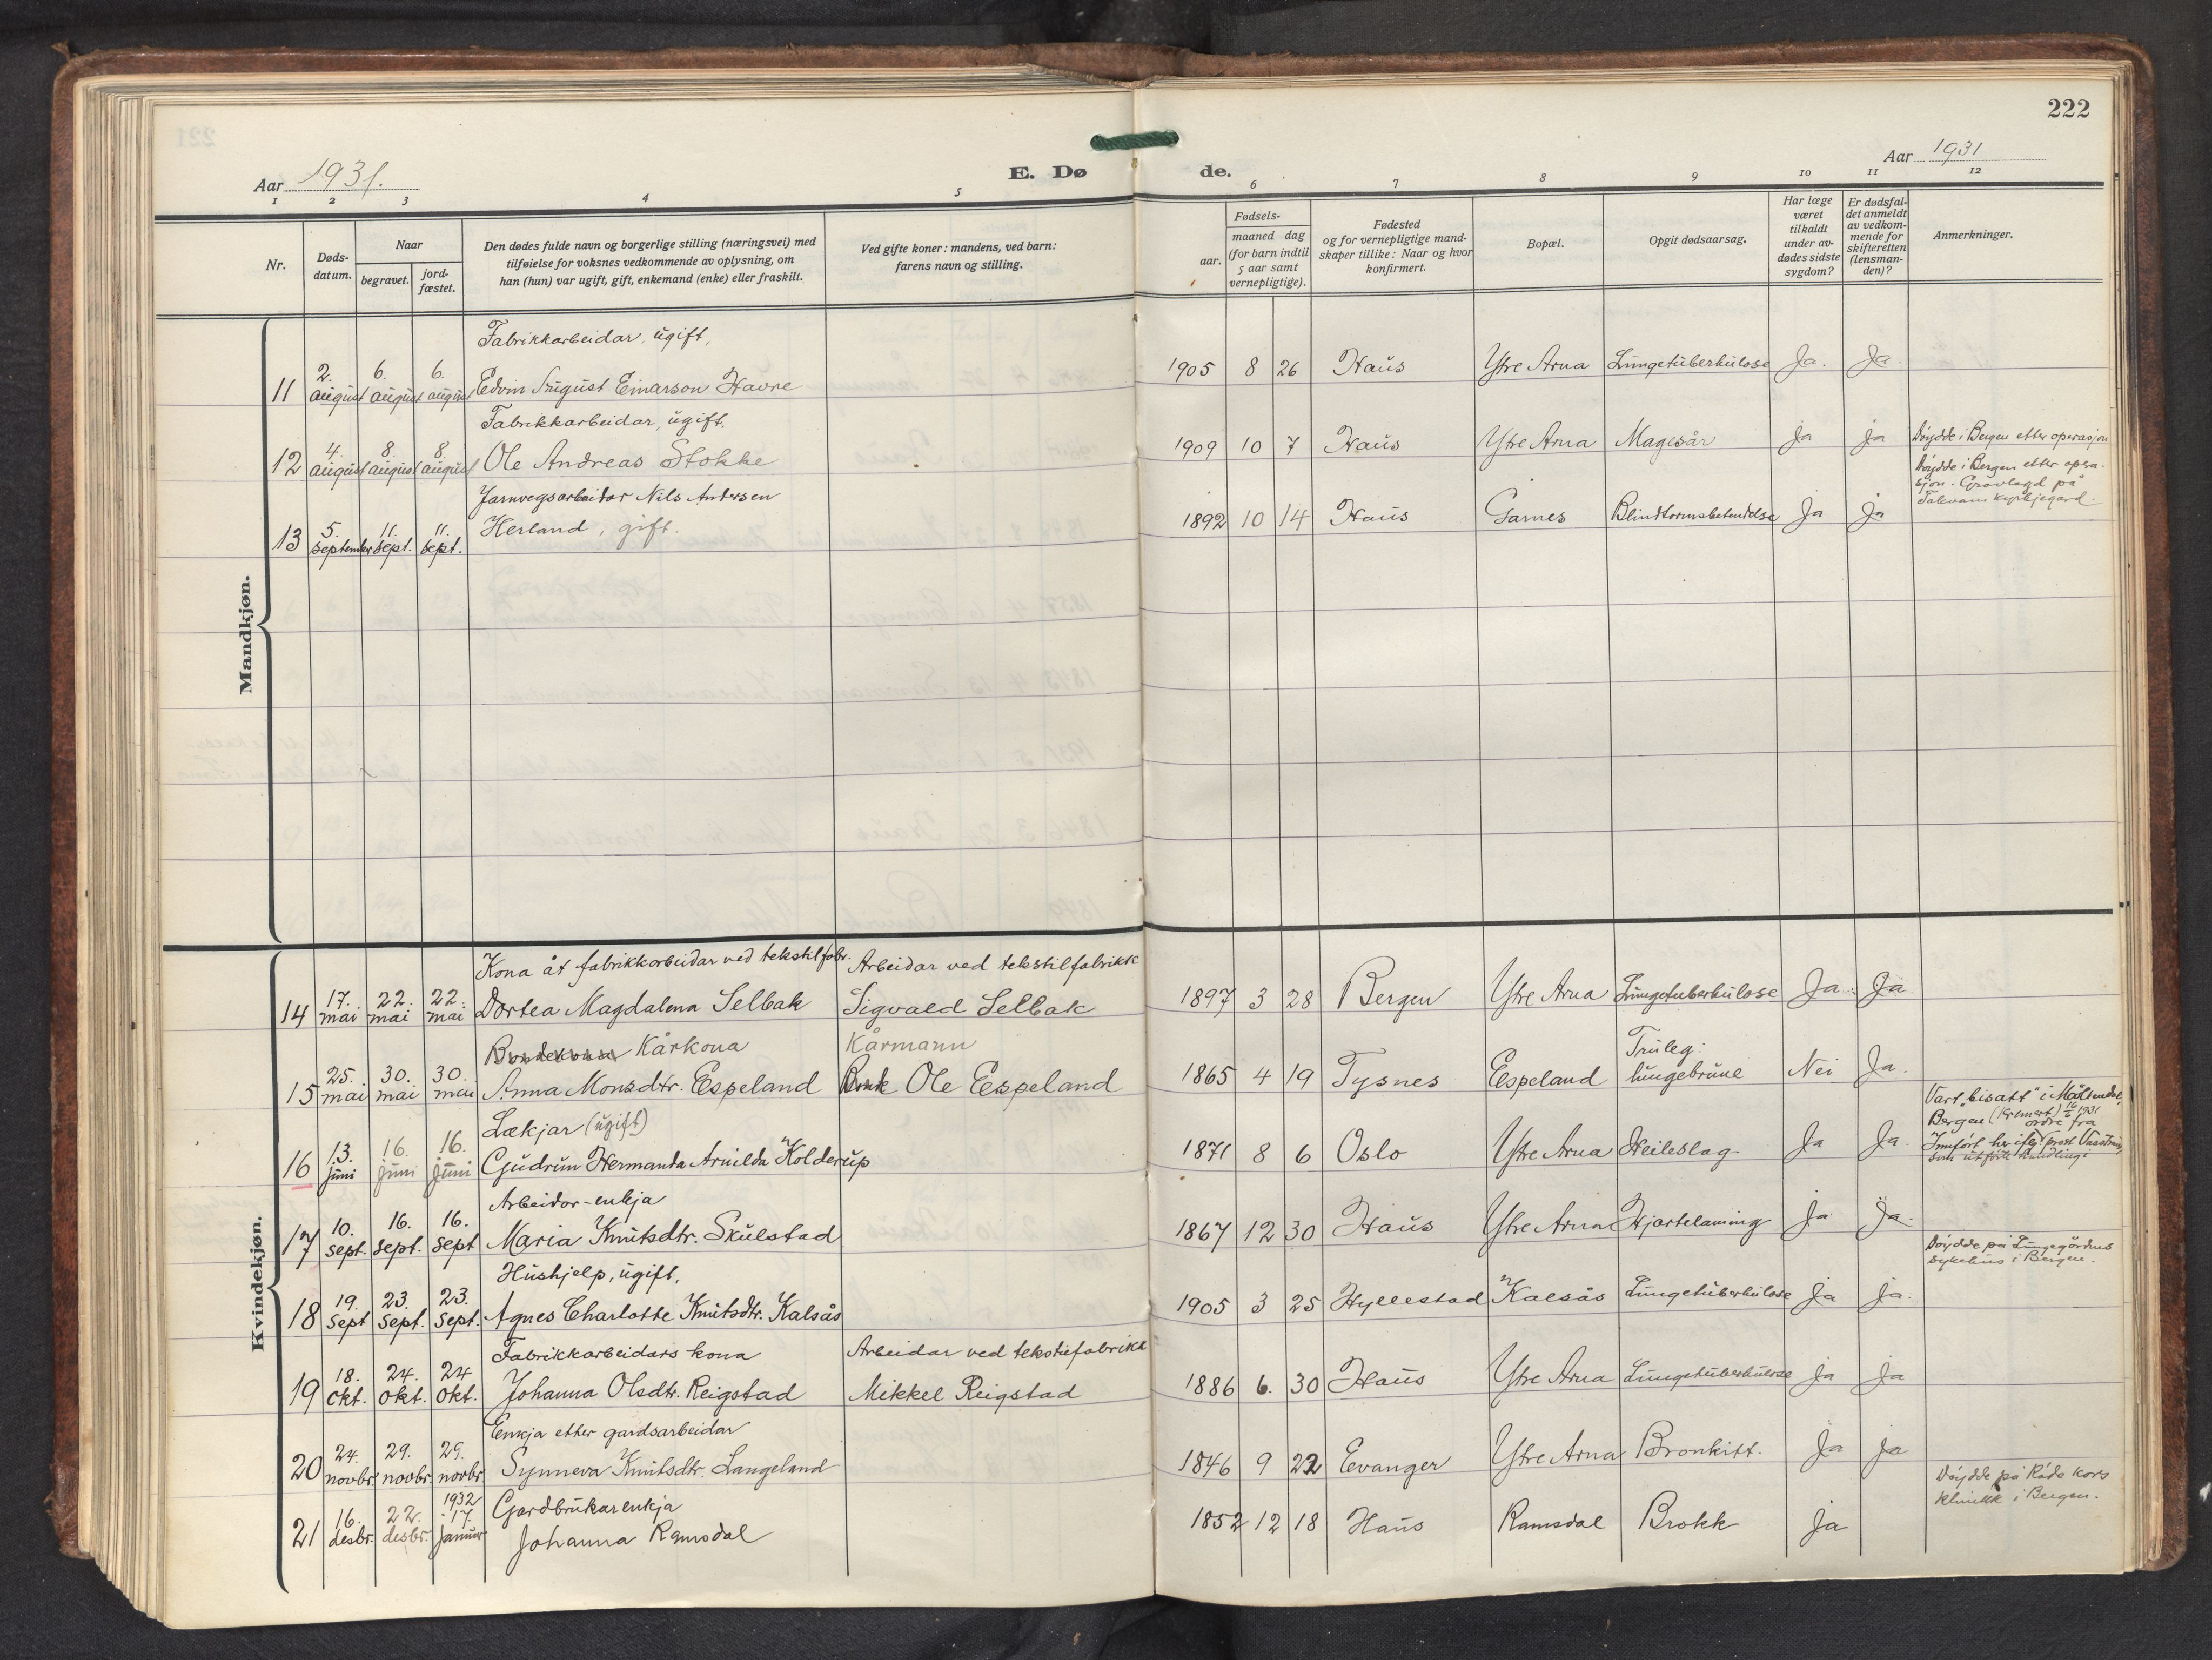 222
Aar 1931.
E. Dø
de.
Aar 1931
1 2 3 4 5 6 7 8 9 10 11 12
Nr.
Døds-
datum.
Naar
begravet.
jord-
fæstet.
Den dødes fulde navn og borgerlige stilling (næringsvei) med
tilføielse for voksnes vedkommende av oplysning, om
han (hun) var ugift, gift, enkemand (enke) eller fraskilt.
Ved gifte koner: mandens, ved barn:
farens navn og stilling.
Fødsels-
aar.
maaned dag
(for barn indtil
5 aar samt
vernepligtige).
Fødested
og for vernepligtige mand-
skaper tillike: Naar og hvor
konfirmert.
Bopæl.
Opgit dødsaarsag.
Har læge
været
tilkaldt
under av-
dødes sidste
sygdom?
Er dødsfal-
det anmeldt
av vedkom-
mende for
skifteretten
(lensman-
den)?
Anmerkninger.
Mandkjøn.
Fabrikkarbeidar, ugift,
11 2. august 6. august 6. august Edvin August Einarson Havre 1905 8 26 Haus Ytre Arna Lungetuberkulose Ja. Ja.
Fabrikkarbeidar, ugift.
12 4. august 8. august 8. august Ole Andreas Stokke 1909 10 7 Haus Ytre Arna Magesår ja ja Døydde i Bergen etter operasjon
Jarnvegsarbeidar Nils Andersen
13 5. september 11. sept. 11. sept. Herland, gift. 1892 10 14 Haus Garnes Blindtarmsbetendelse Ja ja Døydde i Bergen etter opera-
sjon. Gravlagd på
kyrkjegard.
Kvindekjøn.
Kona åt fabrikkarbeidar ved tekstilfabr. Arbeidar ved tekstilfabrikk
14 17. mai 22. mai 22. mai Dortea Magdalena Selbak Sigvald Selbak 1897 3 28 Bergen Ytre Arna Lungetuberkulose Ja. Ja
Bondekona Kårkona Kårmann
15 25. mai 30. mai 30. mai Anna Monsdtr. Espeland Bonde Ole Espeland 1865 4 19 Tysnes Espeland Truleg: lungebrune Nei Ja.
Lækjar (ugift)
16 13. juni 16. juni 16. juni Gudrun Hermanda Arnilda Kolderup 1871 8 6 Oslo Ytre Arna Heileslag Ja Ja. Vart "bisatt" i Møllendal,
Bergen (Kremert) 16/6 1931
Innført her iflg. ordre fra prost
som utførte
Arbeidar-enkja
17 10. sept. 16. sept. 16. sept Maria Knutsdtr. Skulstad 1867 12 30 Haus Ytre Arna Hjartelaming ja ja.
Hushjelp, ugift,
18 19. sept 23. sept. 23. sept. Agnes Charlotte Knutsdtr. Kalsås 1905 3 25 Hyllestad Kalsås Lungetuberkulose ja ja. Døydde på Lungegårdens
sykehus i Bergen.
Fabrikkarbeidars kona Arbeidar ved tekstilfabrikk
19 18. okt. 24. okt. 24 okt. Johanna Olsdtr. Reigstad Mikkel Reigstad 1886 6. 30 Haus Ytre Arna Lungetuberkulose ja ja
Enkja etter gardsarbeidar
20 24. novbr. 29. novbr. 29. novbr. Synneva Knutsdtr. Langeland 1846 9 22 Evanger Ytre Arna Bronkitt. Ja ja
Gardbrukarenkja
21 16. desbr. 22. desbr. 1932 17. januar Johanna Ramsdal 1852 12 18 Haus Ramsdal Brokk ja Døydde på Røde Kors
klinikk i Bergen.